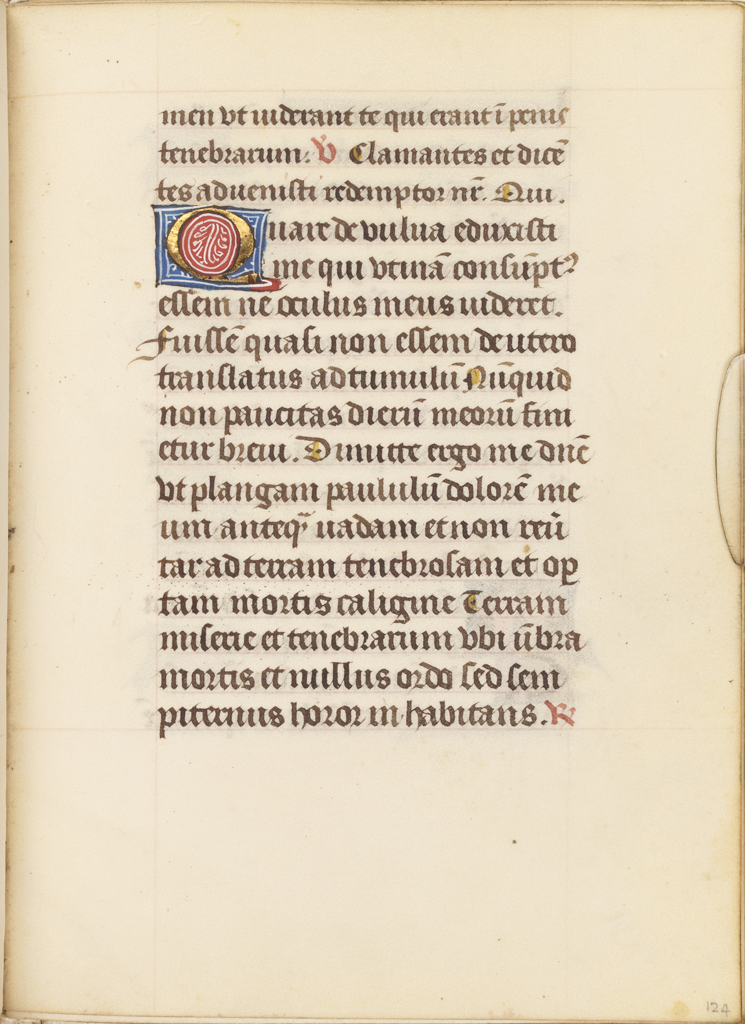 men vt uiderant te qui erant ī penis
tenebrarum. V Clamantes et dicē
tes aduenisti redemptor nr̄. Qui.
Quare de vulua eduxisti
me qui vtinā consūpt᾿
essem ne oculus meus uideret.
Fuissē quasi non essem de utero
translatus ad tumulū Nūquid
non paucitas dierū meorū fini
etur breui. Dimitte ergo me dn̄e
vt plangam paululū dolorē me
um anteq̄ uadam et non reu̅
tar ad terram tenebrosam et oꝑ
tam mortis caligine Terram
miserie et tenebrarum vbi ūbra
mortis et nullus ordo sed sem
piternus horor in habitans. R
124